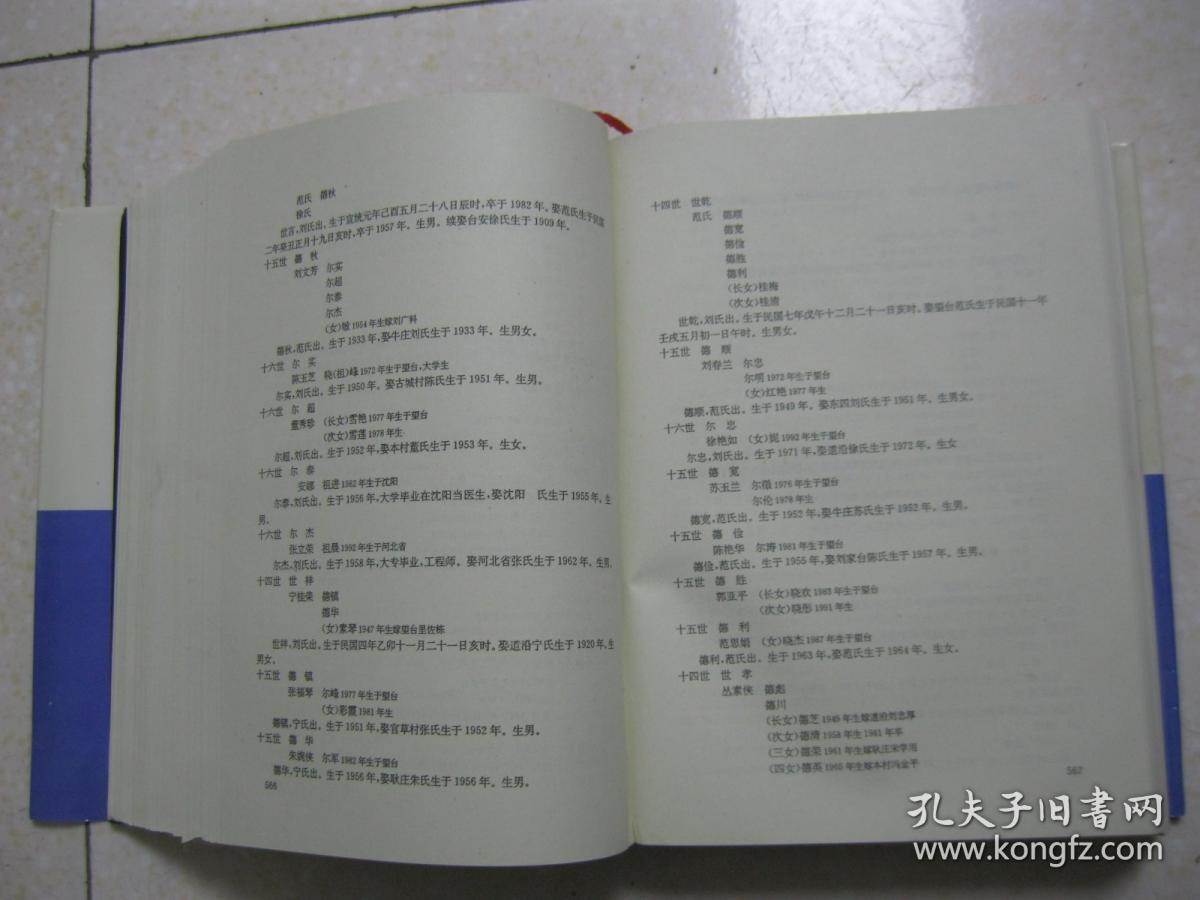 范氏 德秋
徐氏
世言,刘氏出。生于宣统元年己酉五月二十八日辰时,卒于1982年。娶范氏生于民国
二年癸丑正月十九日亥时,卒于1957年。生男。续娶台安徐氏生于1909年。
十五世 德 秋
刘文芳 尔实
尔超
尔泰
尔杰
(女)敏1954年生嫁刘广科
德秋,范氏出。生于1933年,娶牛庄刘氏生于1933年。生男女。
十六世 尔 实
陈玉芝 晓(祖)峰1972年生于望台,大学生
尔实,刘氏出。生于1950年。娶古城村陈氏生于1951年。生男。
十六世 尔 超
董秀珍 (长女)雪艳1977年生于望台
(次女)雪莲1978年生
尔超,刘氏出。生于1952年,娶本村董氏生于1953年。生女。
十六世 尔 泰
安娜 祖进1982年生于沈阳
尔泰,刘氏出。生于1956年,大学毕业在沈阳当医生,娶沈阳 氏生于1955年。生
男。
十六世 尔 杰
张立荣 祖晟1992年生于河北省
尔杰,刘氏出。生于1958年,大专毕业,工程师。娶河北省张氏生于1962年。生男。
十四世 世 祥
宁桂荣 德镇
德华
(女)素琴1947年生嫁望台里佐栋
世祥,刘氏出。生于民国四年乙卯十一月二十一日亥时。娶道沿宁氏生于1920年。生
男女。
十五世 德 镇
张福琴 尔峰1977年生于望台
(女)彩霞1981年生
德镇,宁氏出。生于1951年,娶官草村张氏生于1952年。生男。
十五世 德 华
朱婉侠 尔军1982年生于望台
德华,宁氏出。生于1956年,娶耿庄朱氏生于1956年。生男。
566
十四世 世乾
范氏 德顺
德宽
德俭
德胜
德利
(长女)桂梅
(次女)桂清
世乾,刘氏出。生于民国七年戊午十二月二十一日亥时。娶望台范氏生于民国十一年
壬戌五月初一日午时。生男女。
十五世 德 顺
刘春兰 尔忠
尔明1972年生于望台
(女)红艳1977年生
德顺,范氏出。生于1949年。娶东四刘氏生于1951年。生男女。
十六世 尔 忠
徐艳如 (女)妮1992年生于望台
尔忠,刘氏出。生于1971年,娶道沿徐氏生于1972年。生女
十五世 德 宽
苏玉兰 尔徵1976年生于望台
尔伦1978年生
德宽,范氏出。生于1952年,娶牛庄苏氏生于1952年。生男。
十五世 德 俭
陈艳华 尔涛1981年生于望台
德俭,范氏出。生于1955年,娶刘家台陈氏生于1957年。生男。
十五世 德 胜
郭亚平 (长女)晓欢1983年生于望台
(次女)晓彤1991年生
十五世 德 利
范思娟 (女)晓杰1987年生于望台
德利,范氏出。生于1963年,娶范氏生于1964年。生女。
十四世 世 孝
丛素侠 德彪
德川
(长女)德芝1949年生嫁道沿刘志厚
(次女)德清1958年生1981年卒
(三女)德荣1961年生嫁耿庄宋学用
(四女)德英1965年生嫁本村冯金平
567
孔夫子旧书网
www.kongfz.com